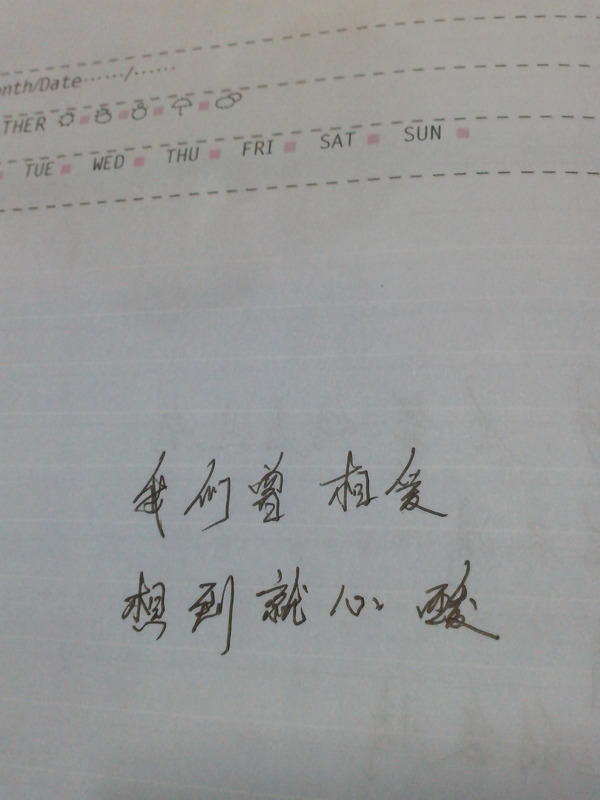 onth/Date······/······
THER
TUE WED THU FRI SAT SUN
我们曾相爱
想到就心酸